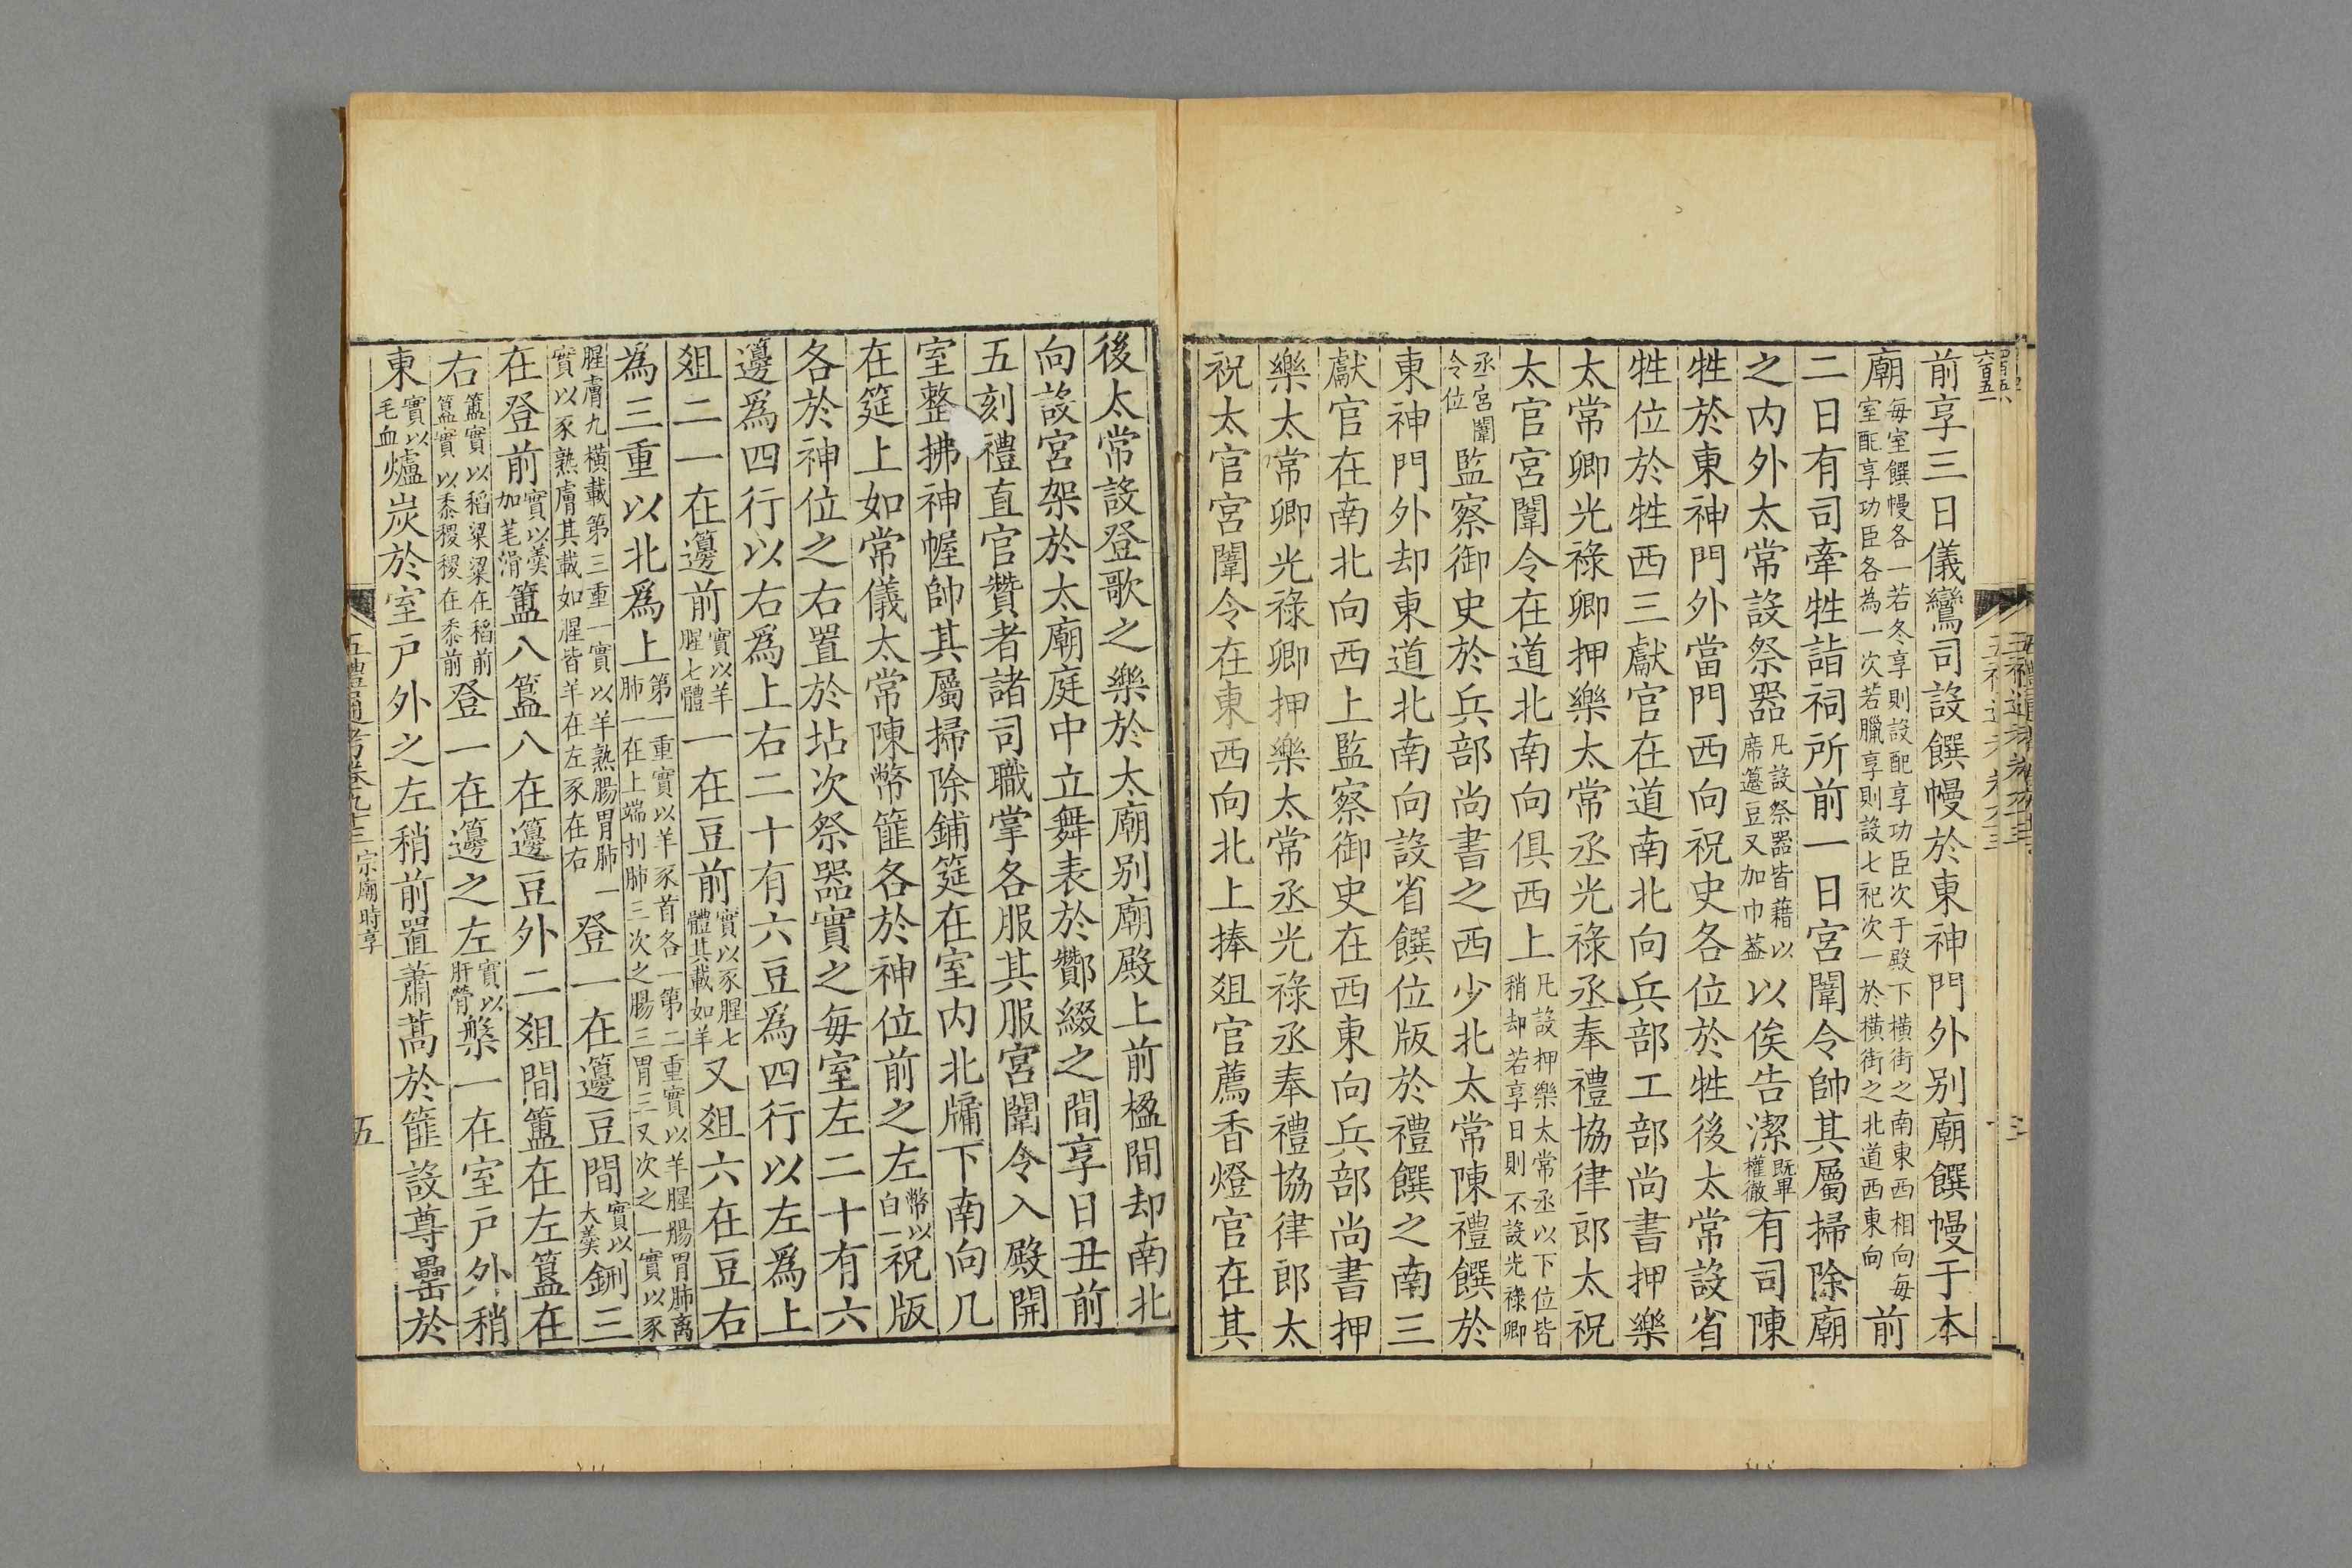 前享三日儀鸞司設饌幔於東神門外别廟饌幔于本
廟每室饌幔各一若冬享則設配享功臣次于殿下橫街之南東西相向每室配享功臣各為一次若臘享則設七祀次一於橫街之北道西東向前
二日有司牽牲詣祠所前一日宮闈令帥其屬掃除廟
之内外太常設祭器凡設祭器皆藉以席籩豆又加巾蓋以俟告潔既畢權徹有司陳
牲於東神門外當門西向祝史各位於牲後太常設省
牲位於牲西三獻官在道南北向兵部工部尚書押樂
太常卿光祿卿押樂太常丞光祿丞奉禮協律郎太祝
太官宮闈令在道北南向俱西上凡設押樂太常丞以下位皆稍却若享日則不設光祿卿
丞宮闈令位監察御史於兵部尚書之西少北太常陳禮饌於
東神門外却東道北南向設省饌位版於禮饌之南三
獻官在南北向西上監察御史在西東向兵部尚書押
樂太常卿光祿卿押樂太常丞光祿丞奉禮協律郎太
祝太官宮闈令在東西向北上捧俎官薦香燈官在其
後太常設登歌之樂於太廟别廟殿上前楹間却南北
向設宮架於太廟庭中立舞表於酇綴之間享日丑前
五刻禮直官贊者諸司職掌各服其服宮闈令入殿開
室整拂神幄帥其屬掃除鋪筵在室内北牖下南向几
在筵上如常儀太常陳幣篚各於神位前之左幣以白一祝版
各於神位之右置於坫次祭器實之每室左二十有六
籩爲四行以右爲上右二十有六豆爲四行以左爲上
俎二一在籩前實以羊腥七體一在豆前實以豕腥七體其載如羊又俎六在豆右
為三重以北爲上第一重實以羊豕首各一第二重實以羊腥腸胃肺离肺一在上端刌肺三次之腸三胃三又次之一實以豕
腥膚九橫載第三重一實以羊熟腸胃肺一實以豕熟膚其載如腥皆羊在左豕在右登一在籩豆間實以大羹鉶三
在登前實以羹加芼滑簠八簋八在籩豆外二俎間簠在左簋在
右簠實以稻粱粱在稻前簋實以黍稷稷在黍前登一在籩之左實以肝膋槃一在室戸外稍
東實以毛血爐炭於室戸外之左稍前置蕭蒿於篚設尊罍於
五禮通考卷九十三 宗廟時享
五